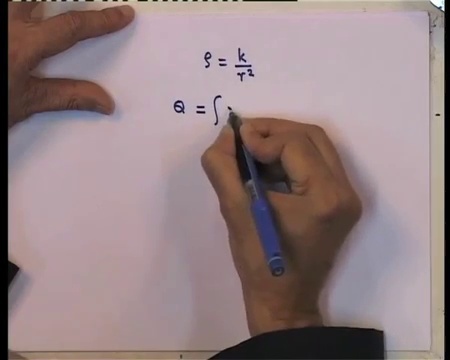 ρ = k/r²
Q = ∫